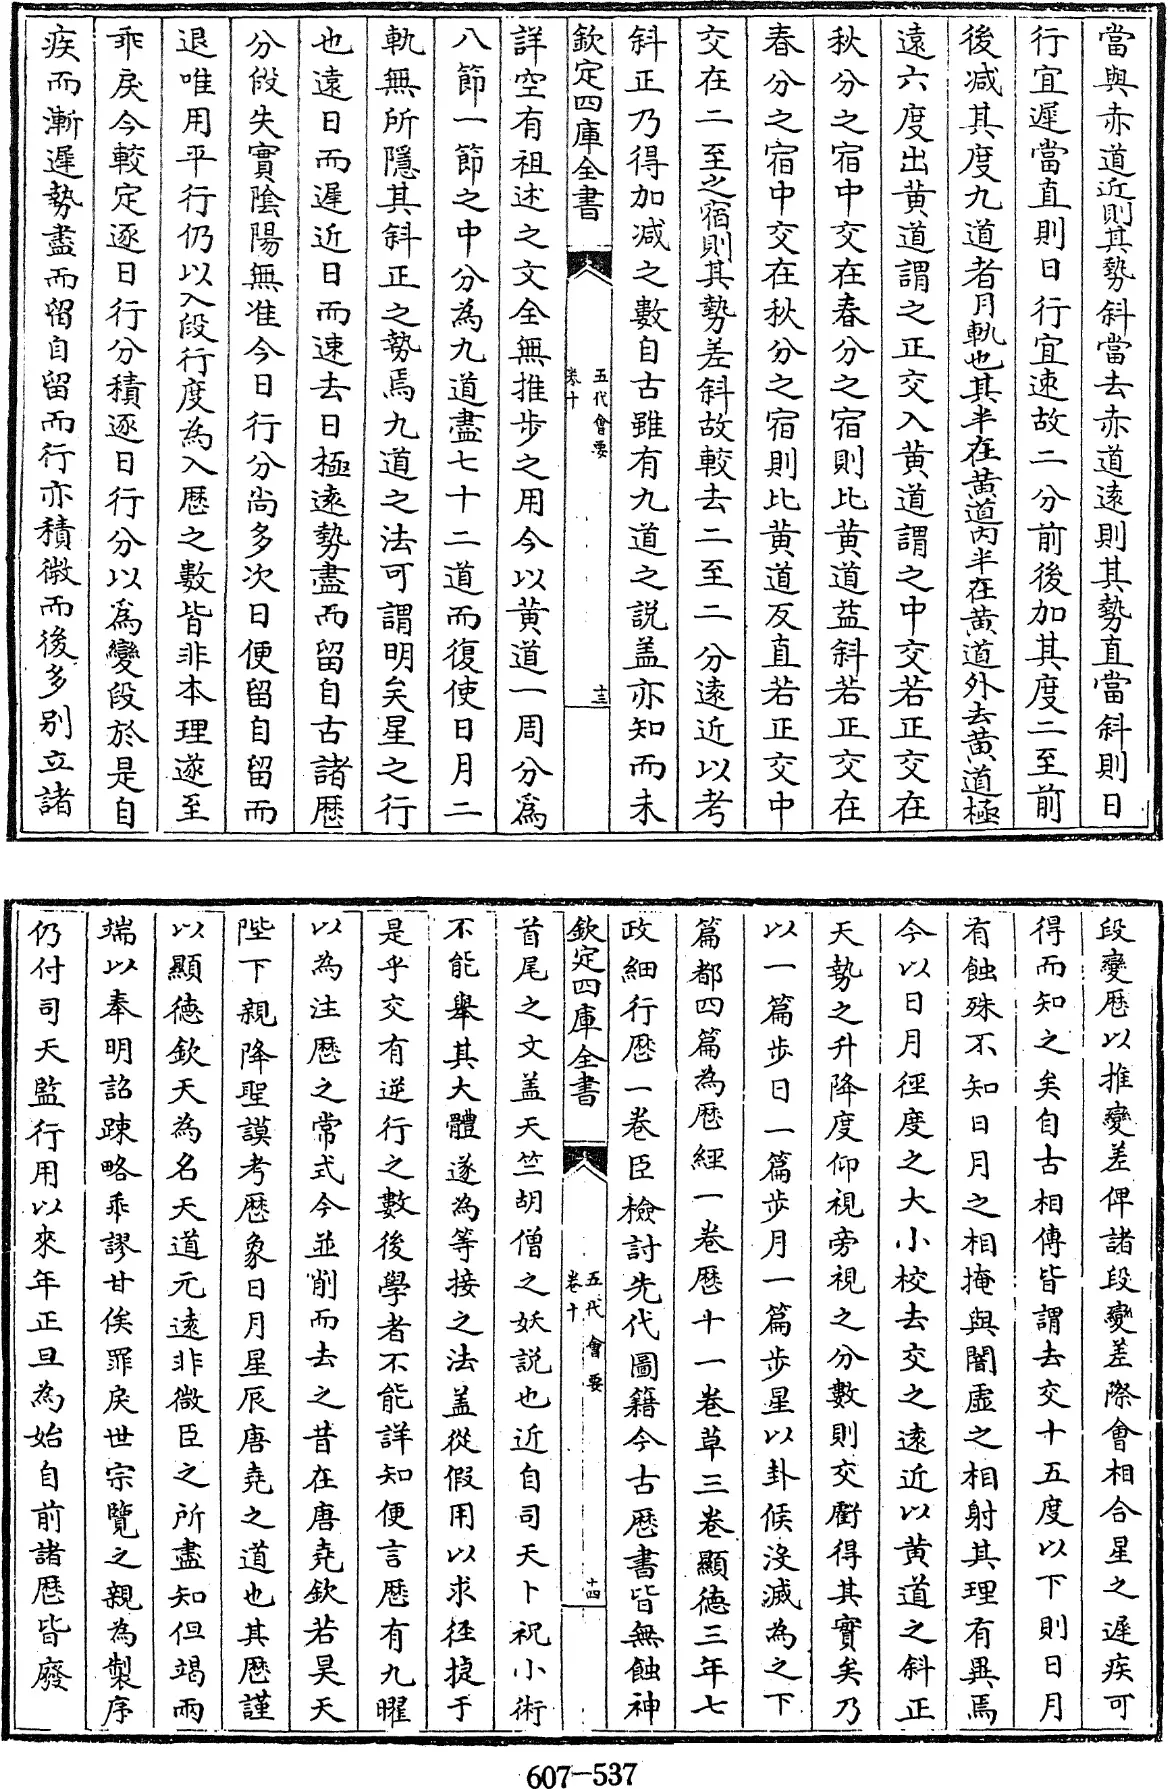 當與赤道近則其勢斜當去赤道遠則其勢直當斜則日
行宜遲當直則日行宜速故二分前後加其度二至前
後减其度九道者月軌也其半在黄道内半在黄道外去黄道極
遠六度出黄道謂之正交入黄道謂之中交若正交在
秋分之宿中交在春分之宿則比黄道益斜若正交在
春分之宿中交在秋分之宿則比黄道反直若正交中
交在二至之宿則其勢差斜故較去二至二分遠近以考
斜正乃得加减之數自古雖有九道之說盖亦知而未
欽定四庫全書
五代會要
卷十
十三
詳空有祖述之文全無推步之用今以黄道一周分為
八節一節之中分為九道盡七十二道而復使日月二
軌無所隱其斜正之勢焉九道之法可謂明矣星之行
也遠日而遲近日而速去日極遠勢盡而留自古諸歴
分段失實隂陽無准今日行分尚多次日便留自留而
退唯用平行仍以入段行度為入歴之數皆非本理遂至
乖戾今較定逐日行分積逐日行分以為變段於是自
疾而漸遲勢盡而留自留而行亦積微而後多别立諸
段變歴以推變差俾諸段變差際會相合星之遲疾可
得而知之矣自古相傳皆謂去交十五度以下則日月
有蝕殊不知日月之相掩與闇虚之相射其理有異焉
今以日月徑度之大小校去交之遠近以黄道之斜正
天勢之升降度仰視旁視之分數則交虧得其實矣乃
以一篇步日一篇步月一篇步星以卦候没滅為之下
篇都四篇為歴經一卷歴十一卷草三卷顯德三年七
政細行歴一卷臣檢討先代圖籍今古歴書皆無蝕神
欽定四庫全書
五代會要
卷十
十四
首尾之文盖天竺胡僧之妖説也近自司天卜祝小術
不能舉其大體遂為等接之法盖從假用以求徑捷于
是乎交有逆行之數後學者不能詳知便言歴有九曜
以為注歴之常式今並削而去之昔在唐堯欽若昊天
陛下親降聖謨考歴象日月星辰唐堯之道也其歴謹
以顯德欽天為名天道元遠非微臣之所盡知但竭兩
端以奉明詔踈略乖謬甘俟罪戾世宗覽之親為製序
仍付司天監行用以來年正旦為始自前諸歴皆廢
607-537